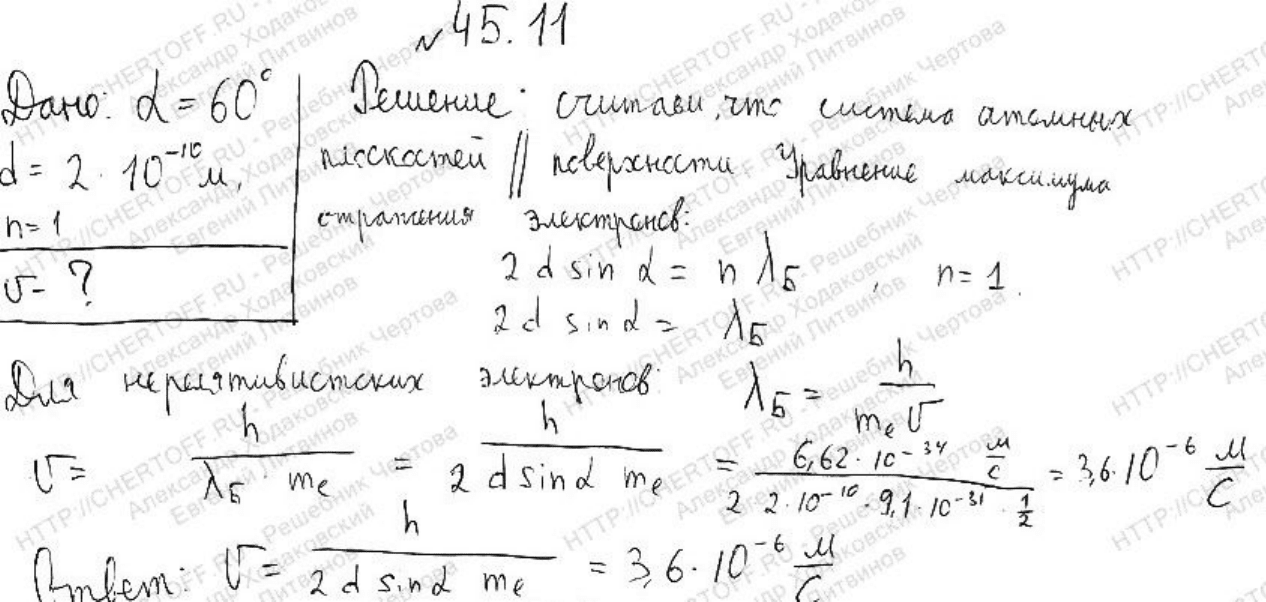 №45.11
Дано: α = 60°
d = 2 · 10⁻¹⁰ м,
n = 1
υ - ?
Решение: считаем, что система атомных
плоскостей || поверхности. Уравнение максимума
отражения электронов:
2 d sin α = n λ_Б , n = 1.
2 d sin α = λ_Б
Для нерелятивистских электронов: λ_Б = h / (m_e υ)
υ = h / (λ_Б · m_e) = h / (2 d sin α m_e) = (6,62 · 10⁻³⁴ м/с) / (2 2 · 10⁻¹⁰ · 9,1 · 10⁻³¹ · 1/2) = 3,6 · 10⁻⁶ м/с
Ответ: υ = h / (2 d sin α m_e) = 3,6 · 10⁻⁶ м/с
HTTP://CHERTOFF.RU - Решебник Чертова
Александр Ходаковский
Евгений Литвинов